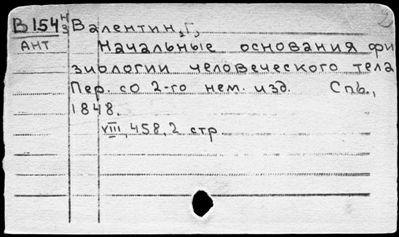 В 154 Н/3 Валентин, Г,
АНТ Начальные основания фи
зиологии человеческого тела
Пер. со 2-го нем. изд. Спб.,
1848.
VIII, 458, 2 стр.